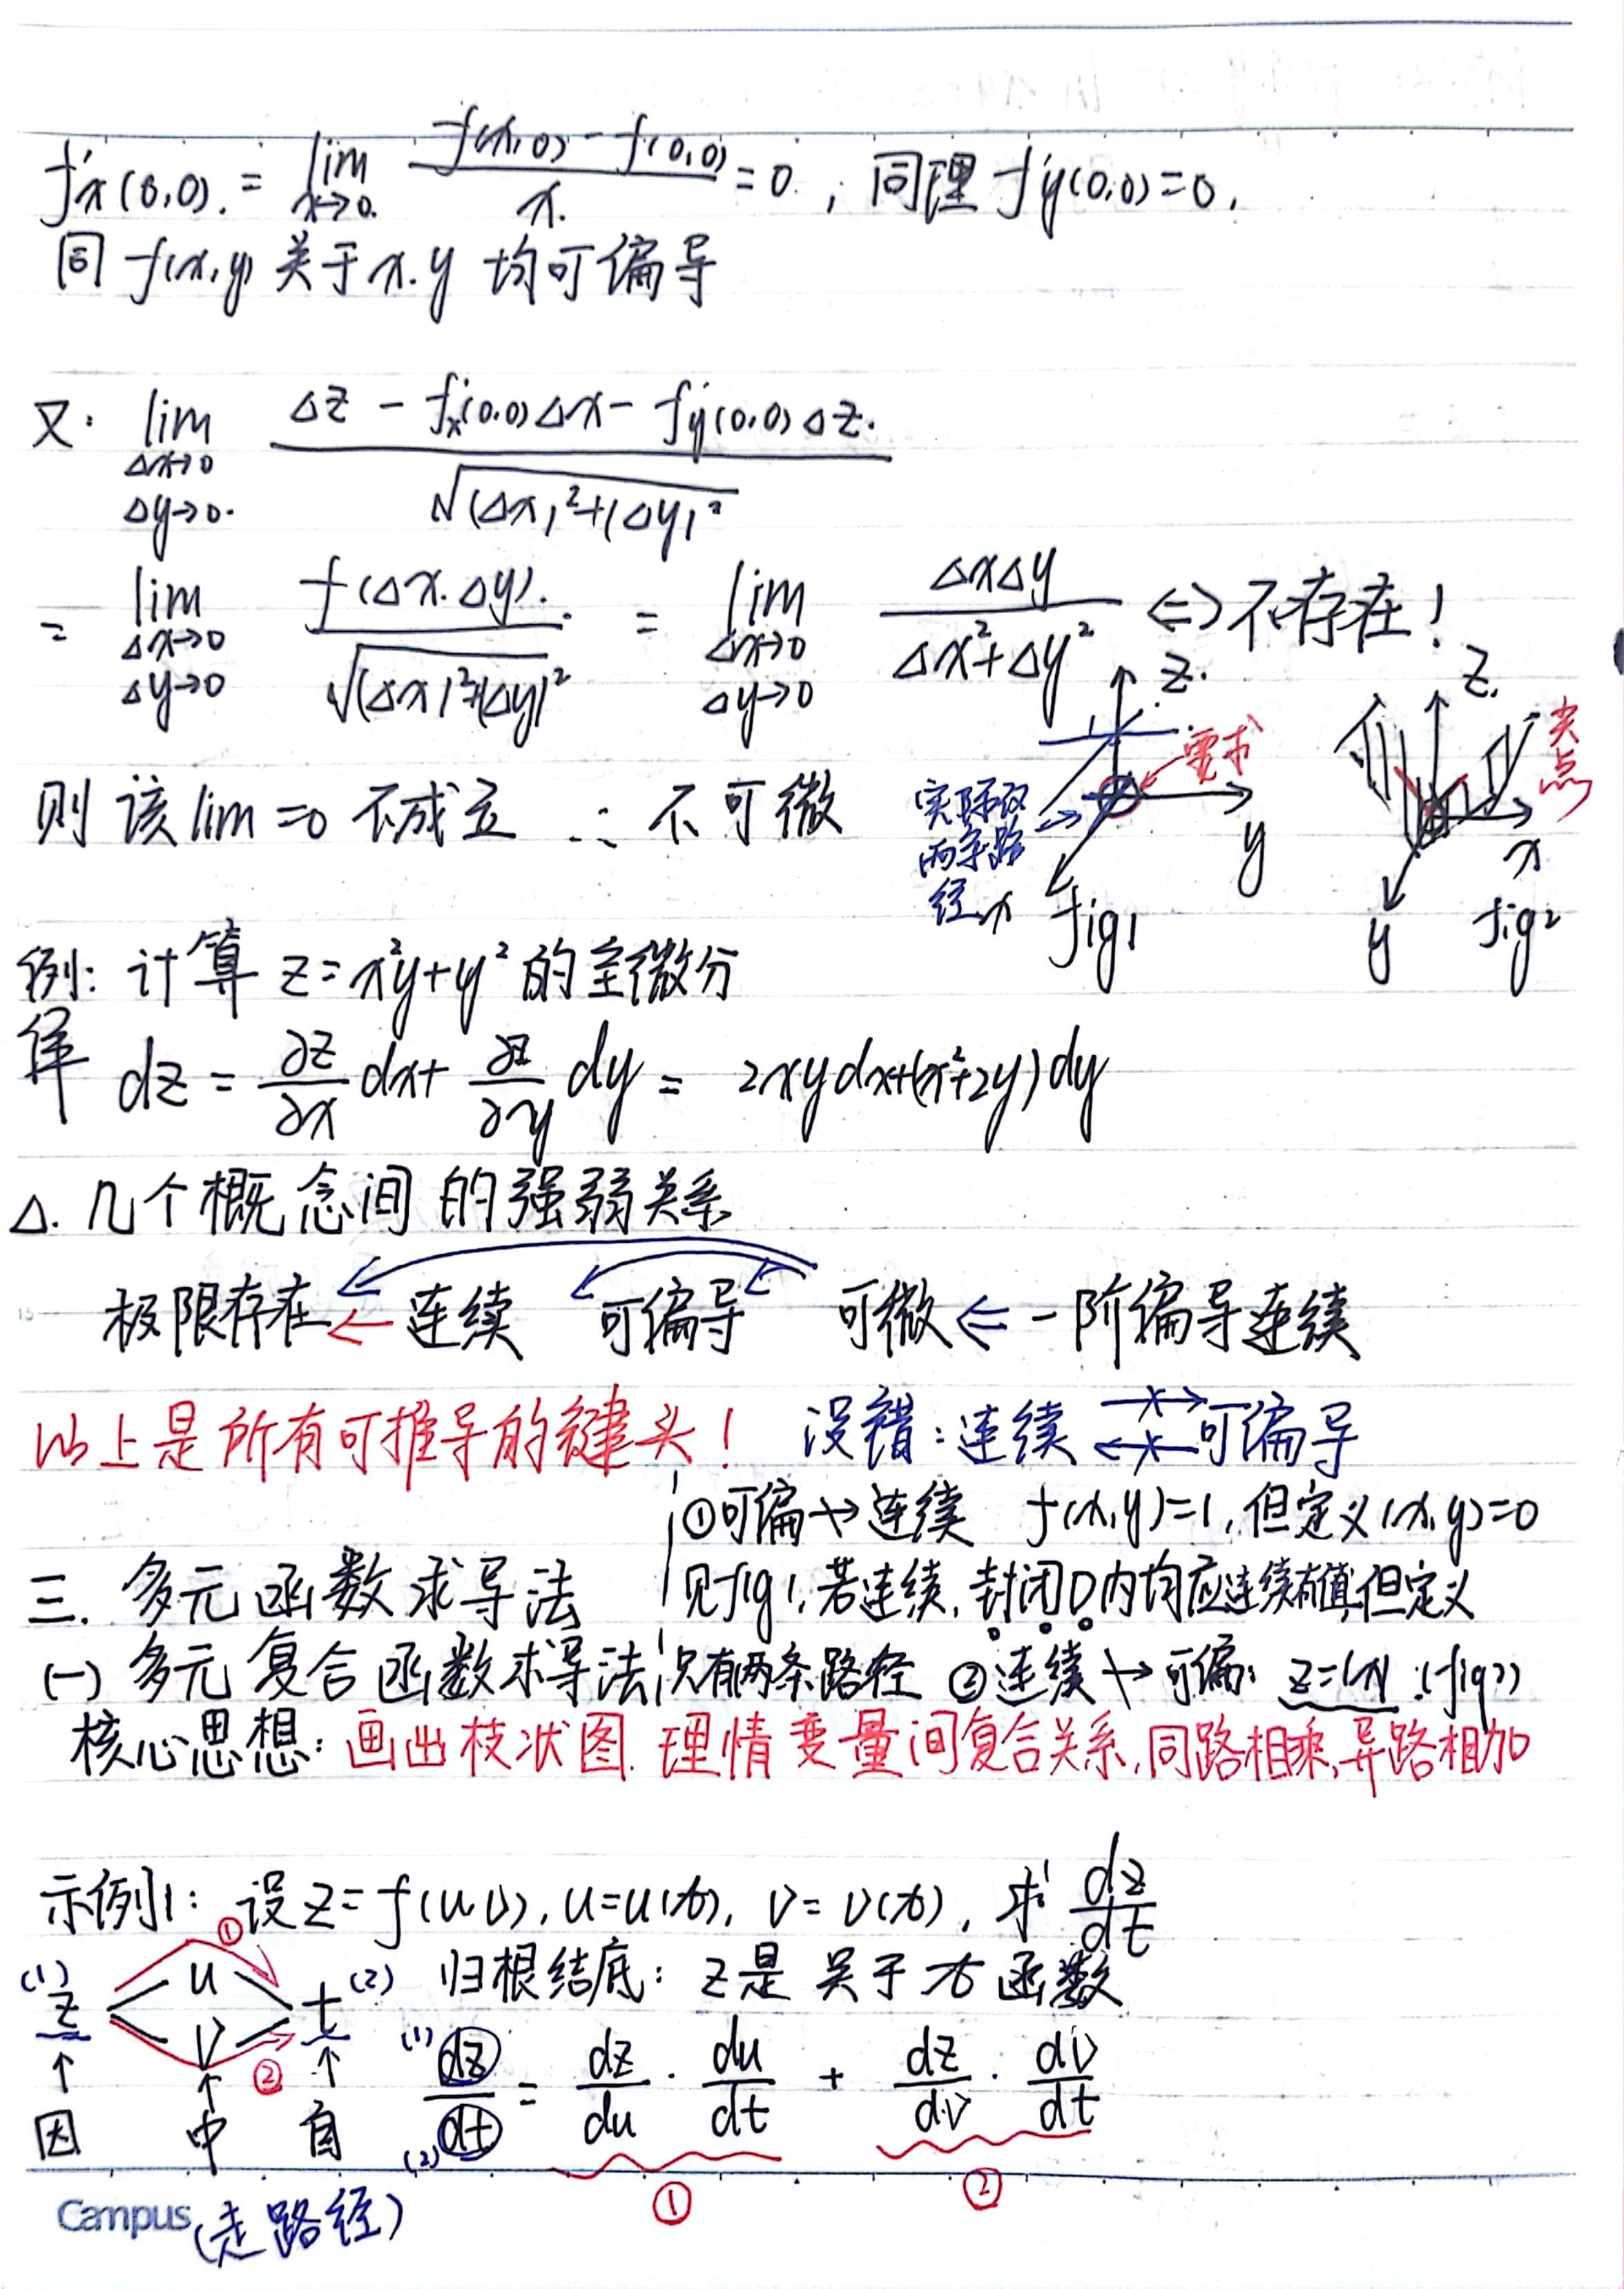 f'x(0,0) = lim x→0 (f(x,0) - f(0,0))/x = 0, 同理 f'y(0,0)=0,
同 f(x,y) 关于 x.y 均可偏导
又: lim Δx→0 Δy→0 (Δz - f'x(0,0)Δx - f'y(0,0)Δz)/√((Δx)²+(Δy)²)
= lim Δx→0 Δy→0 f(Δx.Δy)/√((Δx)²+(Δy)²) = lim Δx→0 Δy→0 ΔxΔy/(Δx²+Δy²) ⇔ 不存在!
则该 lim =0 不成立 ∴ 不可微
z
要求
实际仅
两条路
径
x
y
fig1
z
尖点
x
y
fig2
例: 计算 z=x²y+y² 的全微分
解 dz = ∂z/∂x dx + ∂z/∂y dy = 2xydx+(x²+2y)dy
Δ. 几个概念间的强弱关系
极限存在 ← 连续 可偏导 可微 ⇐ 一阶偏导连续
以上是所有可推导的箭头! 没错:连续 可偏导
①可偏↛连续 f(x,y)=1,但定义(x,y)=0
见fig1,若连续,封闭D内均应连续有值,但定义
只有两条路径 ②连续↛可偏: z=|x| (fig2)
三. 多元函数求导法
(一) 多元复合函数求导法
核心思想: 画出枝状图.理情变量间复合关系,同路相乘,异路相加
示例1: 设z=f(u,v), u=u(t), v=v(t), 求 dz/dt
归根结底: z是关于t函数
(1) z u v t (2) ① ②
(1) dz/dt (2) = dz/du · du/dt + dz/dv · dv/dt
① ②
↑ ↑ ↑
因 中 自
Campus (走路径)